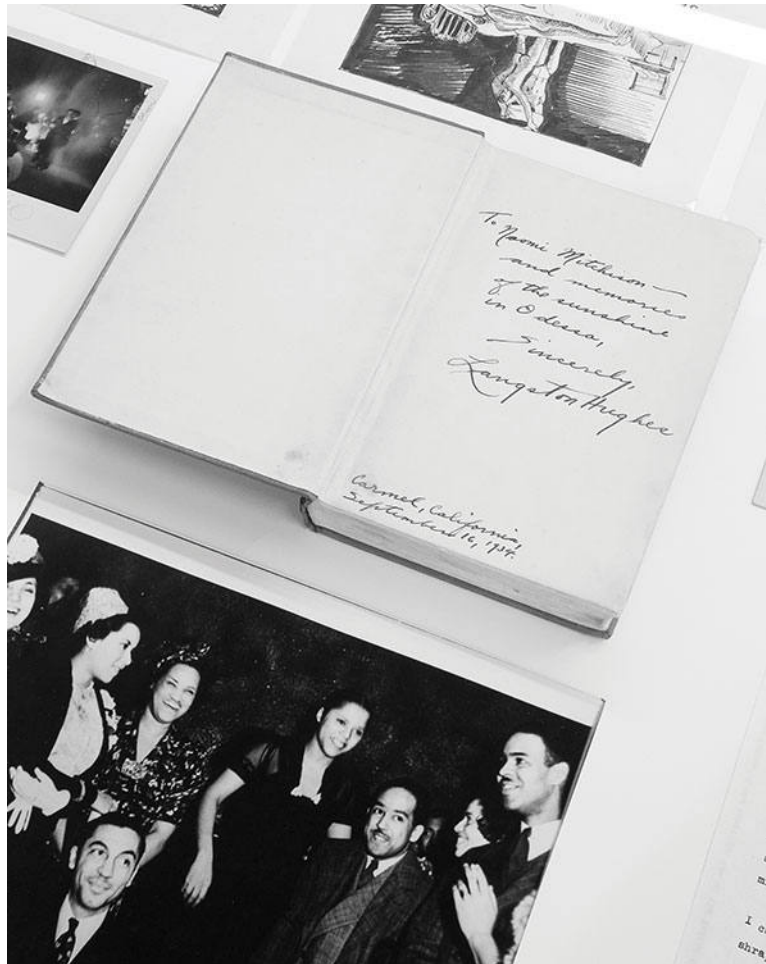 To Naomi Mitchison —
and memories
of the sunshine
in Odessa,
Sincerely,
Langston Hughes
Carmel, California,
September 16, 1934.
I c
shra